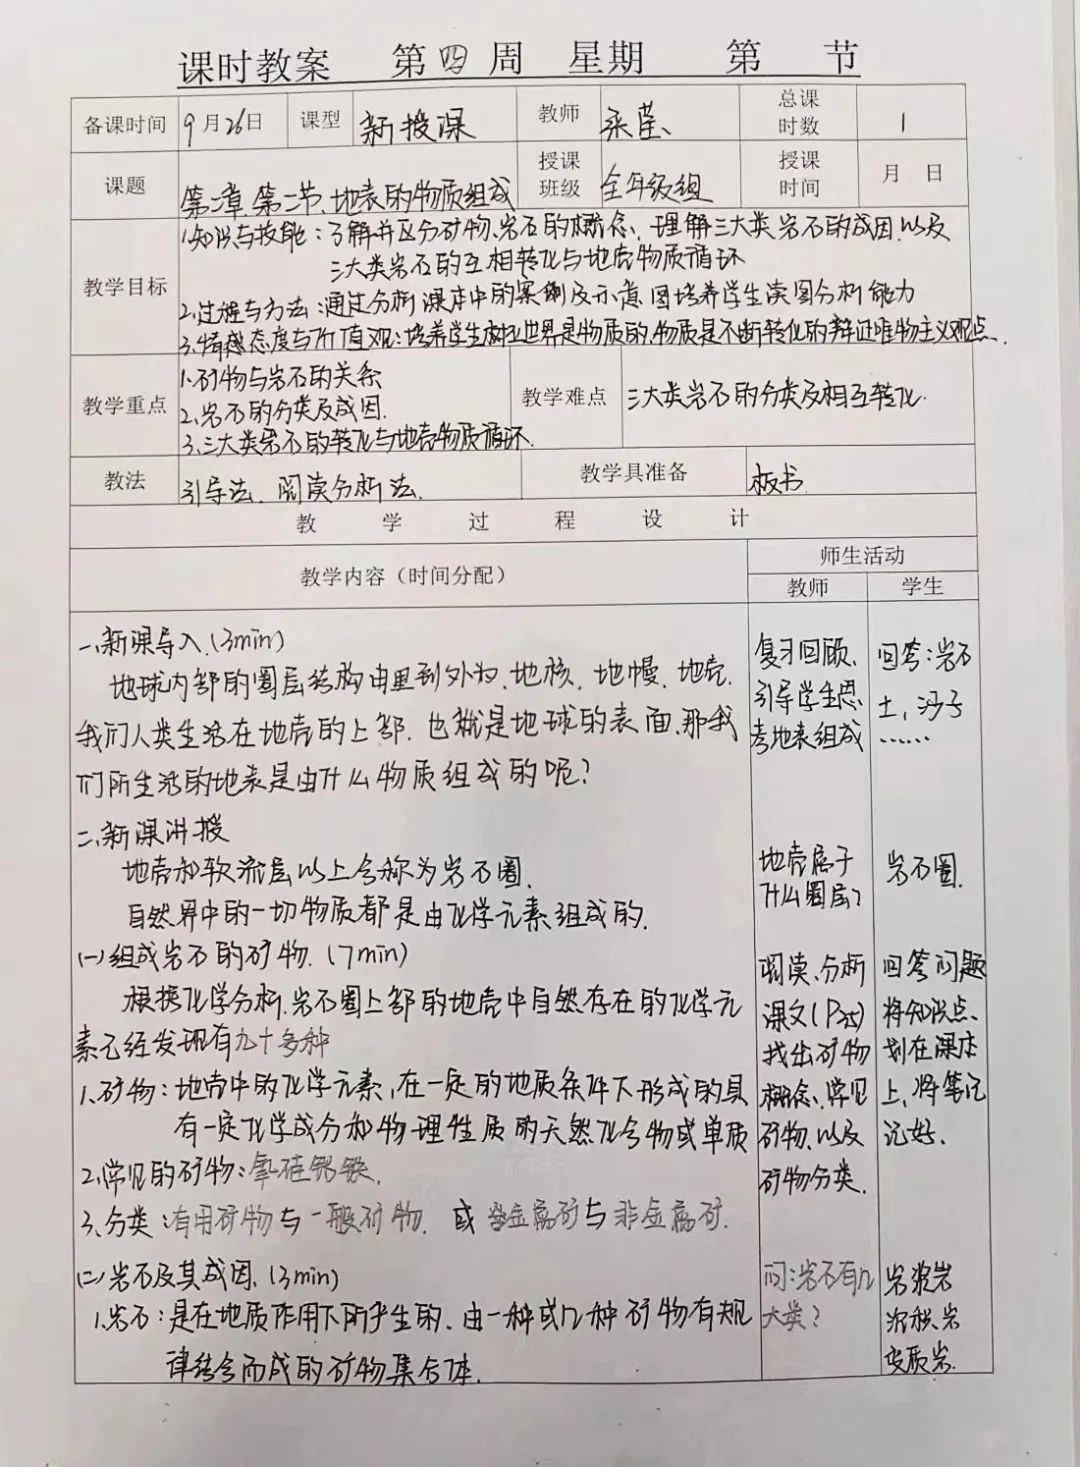 课时教案 第四周 星期 第 节
备课时间 9月26日 课型 新授课 教师 总课时数 1
课题 第二章 第二节、地表的物质组成 授课班级 全年级组 授课时间 月 日
教学目标
1.知识与技能：了解并区分矿物、岩石的概念，理解三大类岩石的成因以及
三大类岩石的互相转化与地壳物质循环
2.过程与方法：通过分析课本中的案例及示意图培养学生读图分析能力
3.情感态度与价值观：培养学生树立世界是物质的，物质是不断转化的辩证唯物主义观点.
教学重点
1.矿物与岩石的关系
2.岩石的分类及成因.
3.三大类岩石的转化与地壳物质循环.
教学难点 三大类岩石的分类及相互转化.
教法 引导法、阅读分析法. 教学具准备 板书
教学过程设计
教学内容（时间分配） 师生活动
教师 学生
一、新课导入.(3min)
地球内部的圈层结构由里到外为、地核、地幔、地壳.
我们人类生活在地壳的上部，也就是地球的表面.那我
们所生活的地表是由什么物质组成的呢？
二、新课讲授
地壳和软流层以上合称为岩石圈.
自然界中的一切物质都是由化学元素组成的.
(一)组成岩石的矿物.(7min)
根据化学分析.岩石圈上部的地壳中自然存在的化学元
素已经发现有九十多种
1.矿物：地壳中的化学元素，在一定的地质条件下形成的具
有一定化学成分和物理性质的天然化合物或单质
2.常见的矿物：氧硅铝铁.
3、分类：有用矿物与一般矿物. 或 金属矿与非金属矿.
(二)岩石及其成因.(3min)
1.岩石：是在地质作用下所产生的、由一种或几种矿物有规
律结合而成的矿物集合体.
复习回顾、
引导学生思
考地表组成
地壳属于
什么圈层？
阅读、分析
课文(P25)
找出矿物
概念、常见
矿物、以及
矿物分类.
问：岩石有几
大类？
回答：岩石
土，沙子
……
岩石圈.
回答问题
将知识点、
划在课本
上，将笔记
记好.
岩浆岩
沉积岩
变质岩.